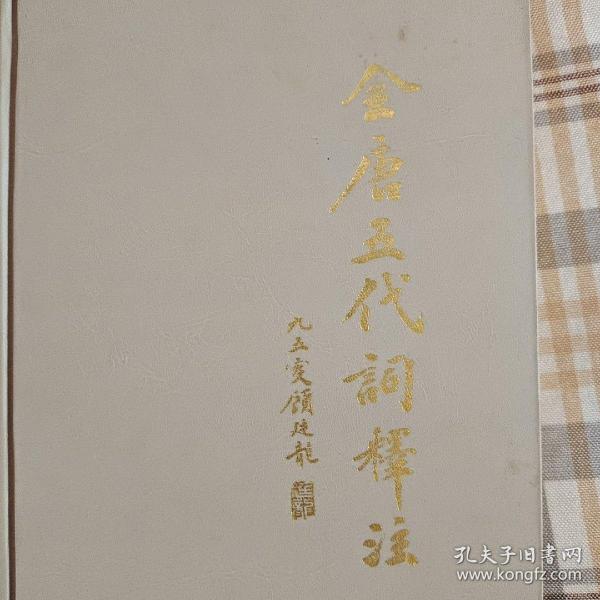 全唐五代詞釋注
九五叟顧廷龍
孔夫子旧书网
www.kongfz.com